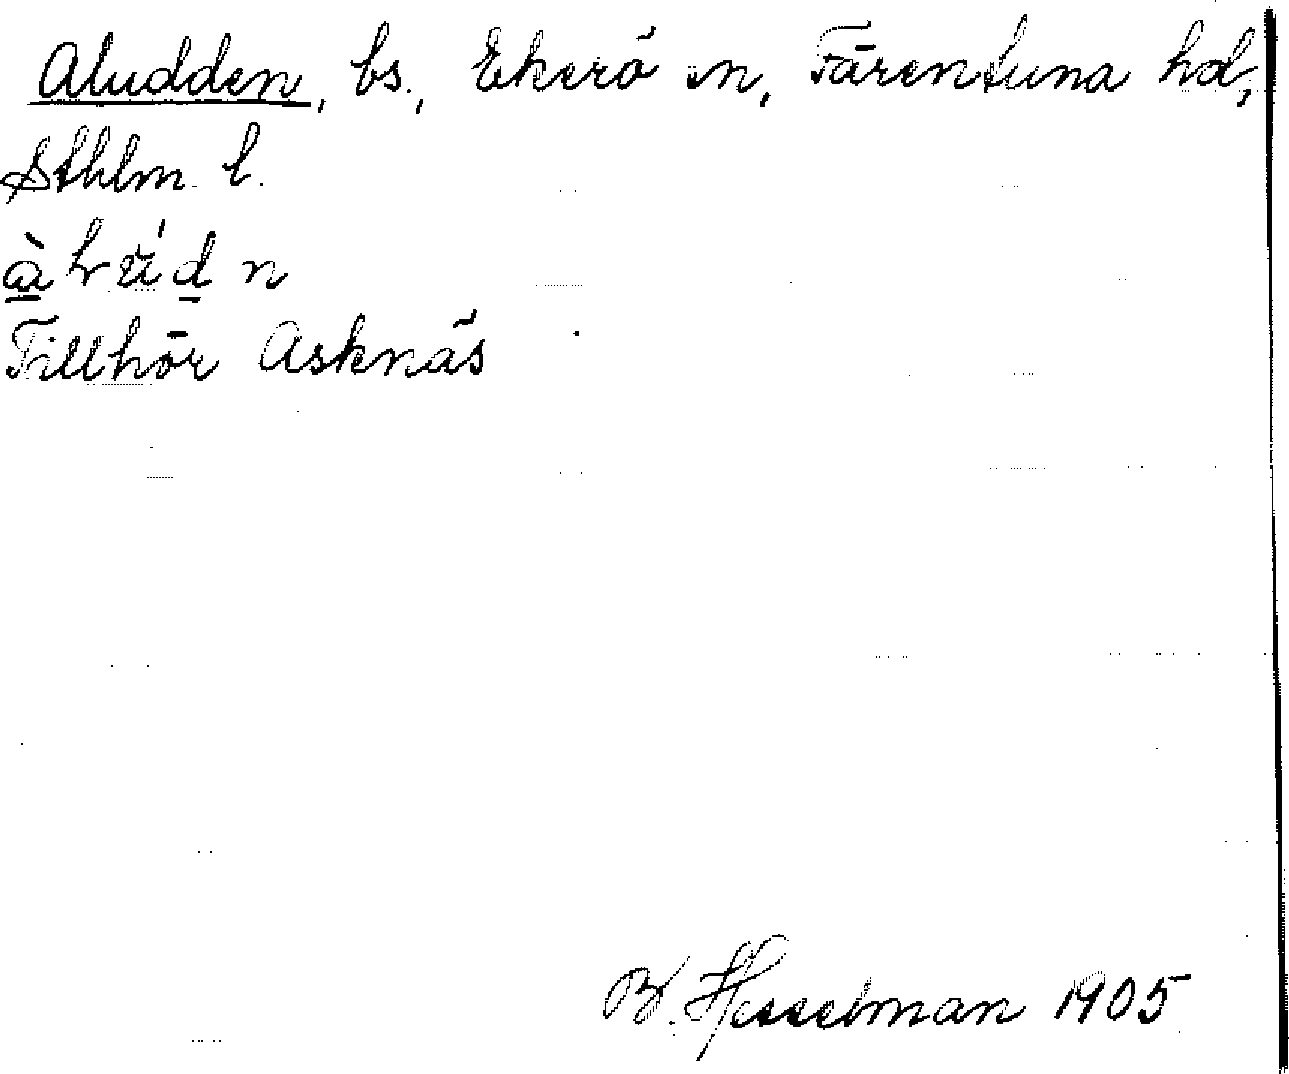 Aludden, bs., Ekerö sn, Färentuna hd,
Sthlm. l.
Tillhör Asknäs
B. Hesselman 1905